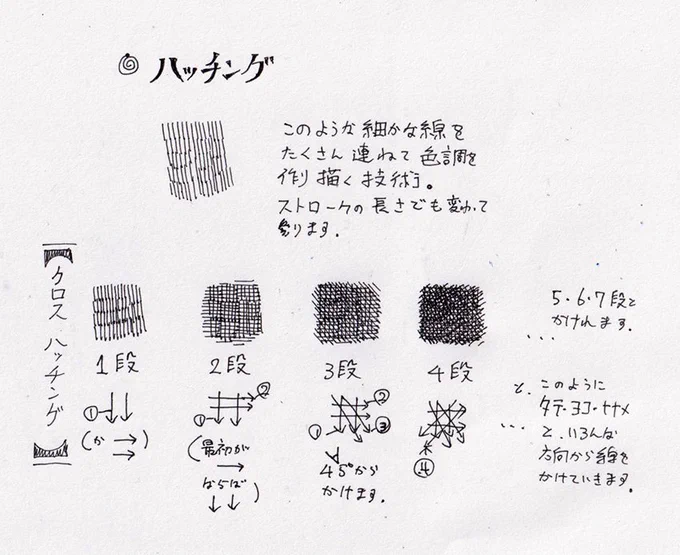 ハッチング
このような細かな線を
たくさん連ねて色調を
作り描く技術。
ストロークの長さでも変わって
参ります。
クロスハッチング
1段
2段
3段
4段
①
(か → )
→
①
②
(最初が
→
ならば
↓↓ )
①
②
③
45°から
かけます。
④
5・6・7段と
かけれます。
・・・
と、このように
タテ・ヨコ・ナナメ
・・・
と、いろんな
方向から線を
かけていきます。